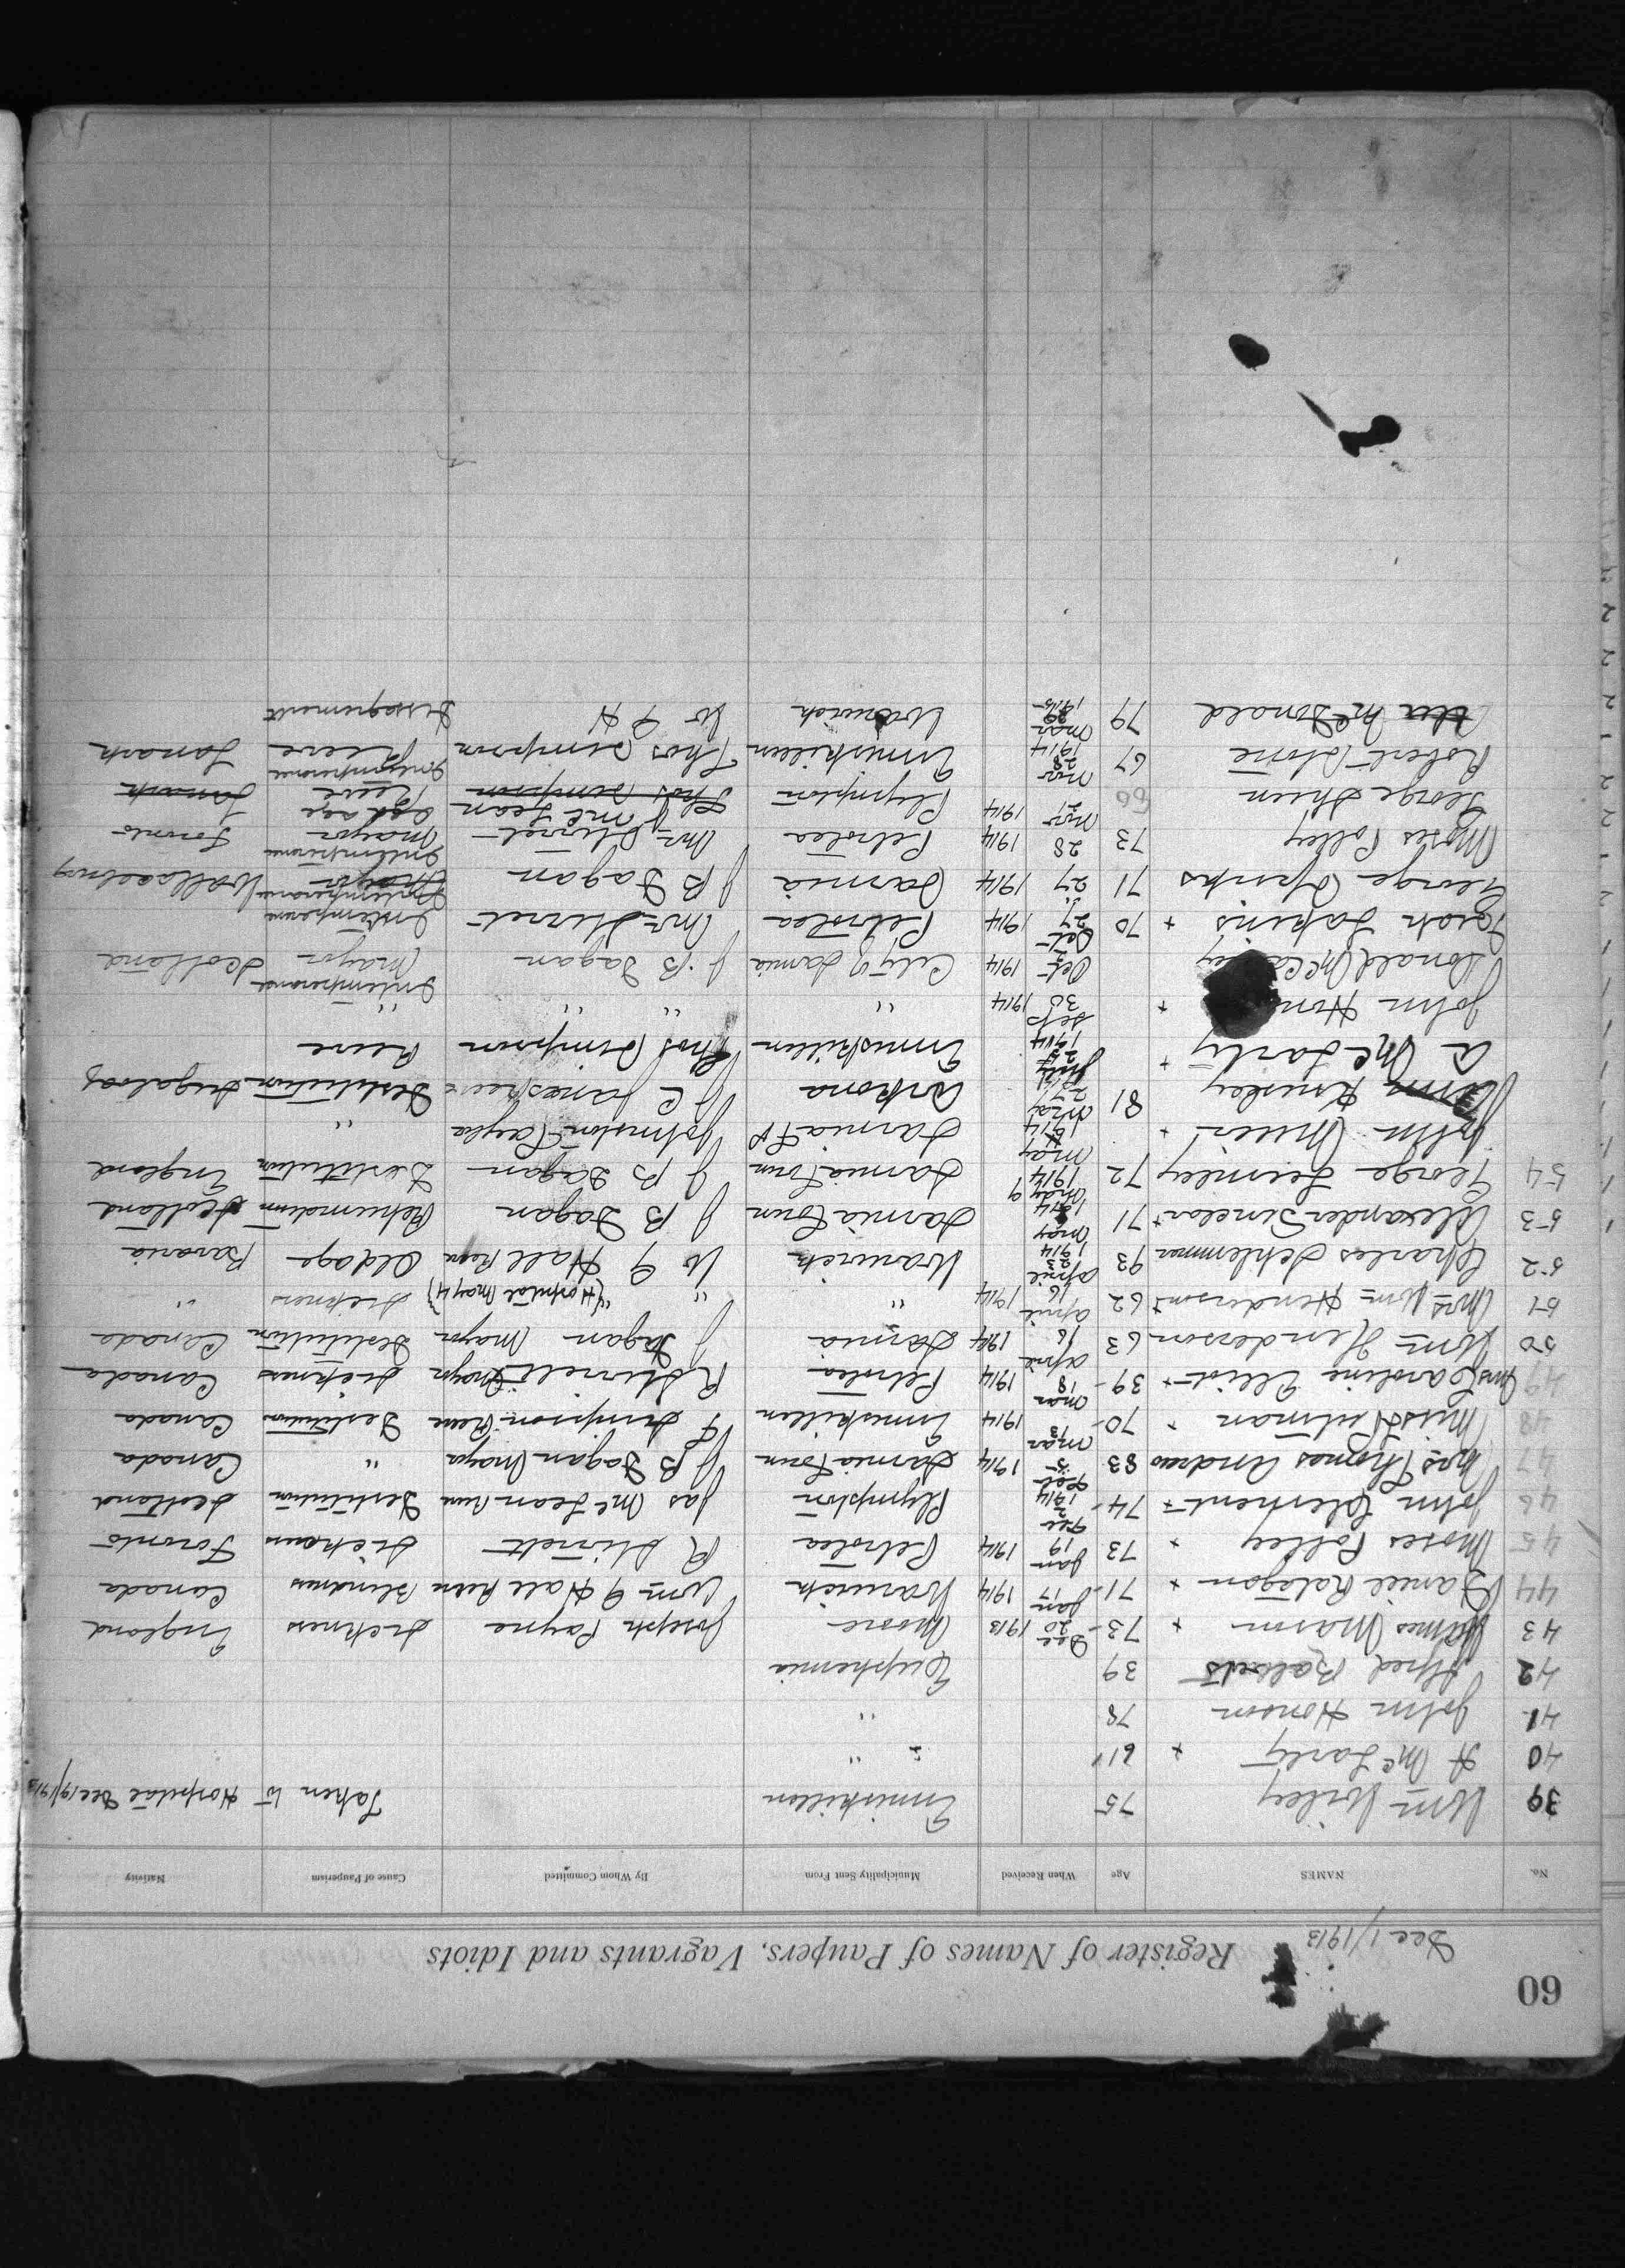 60
Register of Names of Paupers, Vagrants and Idiots
Dec 1/1913
No. NAMES Age When Received Municipality Sent From By Whom Committed Cause of Pauperism Nativity
39 Wm Wiley 75 Enniskillen Taken to Hospital Dec 19/1913
40 A McCarty + 61 " "
41 John Honson 78 "
42 Alfred 39 Euphemia
43 James Mason + 73 Dec 20 1913 Moore Joseph Payne sickness England
44 Daniel + 71 Jan 17 1914 Warwick Wm G Hall Reeve Blindness Canada
45 Moses Polley + 73 Jan 19 1914 Petrolea R Stirrett sickness Toronto
46 John Clement + 74 Feb 2 1914 Plympton Jas McLean Reeve Destitution Scotland
47 Mrs Thomas Andrew 83 Feb 5 1914 Sarnia Town J B Dagan Mayor " Canada
48 Miss Pitman + 70 Mar 13 1914 Enniskillen T Simpson Reeve Destitution Canada
49 Mrs Caroline Elliot + 39 Mar 18 1914 Petrolea R Stirrett Mayor sickness Canada
50 Wm Henderson 63 April 6 1914 Sarnia J Dagan Mayor Destitution Canada
51 Mrs Wm Henderson + 62 April 16 1914 " " (Hospital May 4) sickness "
52 Charles Schlemmar 93 April 23 1914 Warwick W G Hall Reeve Old age Bavaria
53 Alexander Sinclar + 71 May 1914 Sarnia Town J B Dagan Rehumatism Scotland
54 George 72 May 9 1914 Sarnia Town J B Dagan Destitution England
John Mier + May 1914 Sarnia Tp Johnston "
Kinsley 81 27 Arkona J C Destitution
A McCarty + July 25 1914 Enniskillen Thos Simpson Reeve
John Hon + Sep 30 1914 " " " "
Donald Mc Oct 1914 City of Sarnia J. B Dagan Intemperance Mayor Scotland
+ 70 Oct 27 1914 Petrolea Mr Stirret Intemperance
George Spinks 71 " 27 1914 Sarnia J B Dagan Intemperance Mayor Wallaceburg
Moses Polley 73 28 1914 Petrolea Mr Stirret Intemperance Mayor Toronto
George Green 66 Nov 21 1914 Plympton McLean Thos Simpson Old age Reeve Lanark
Robert Stone 67 Nov 28 1914 Enniskillen Thos Simpson Intemperance Reeve Lanark
McDonald 79 Mar 29 1915 Warwick W G H Dissagrement